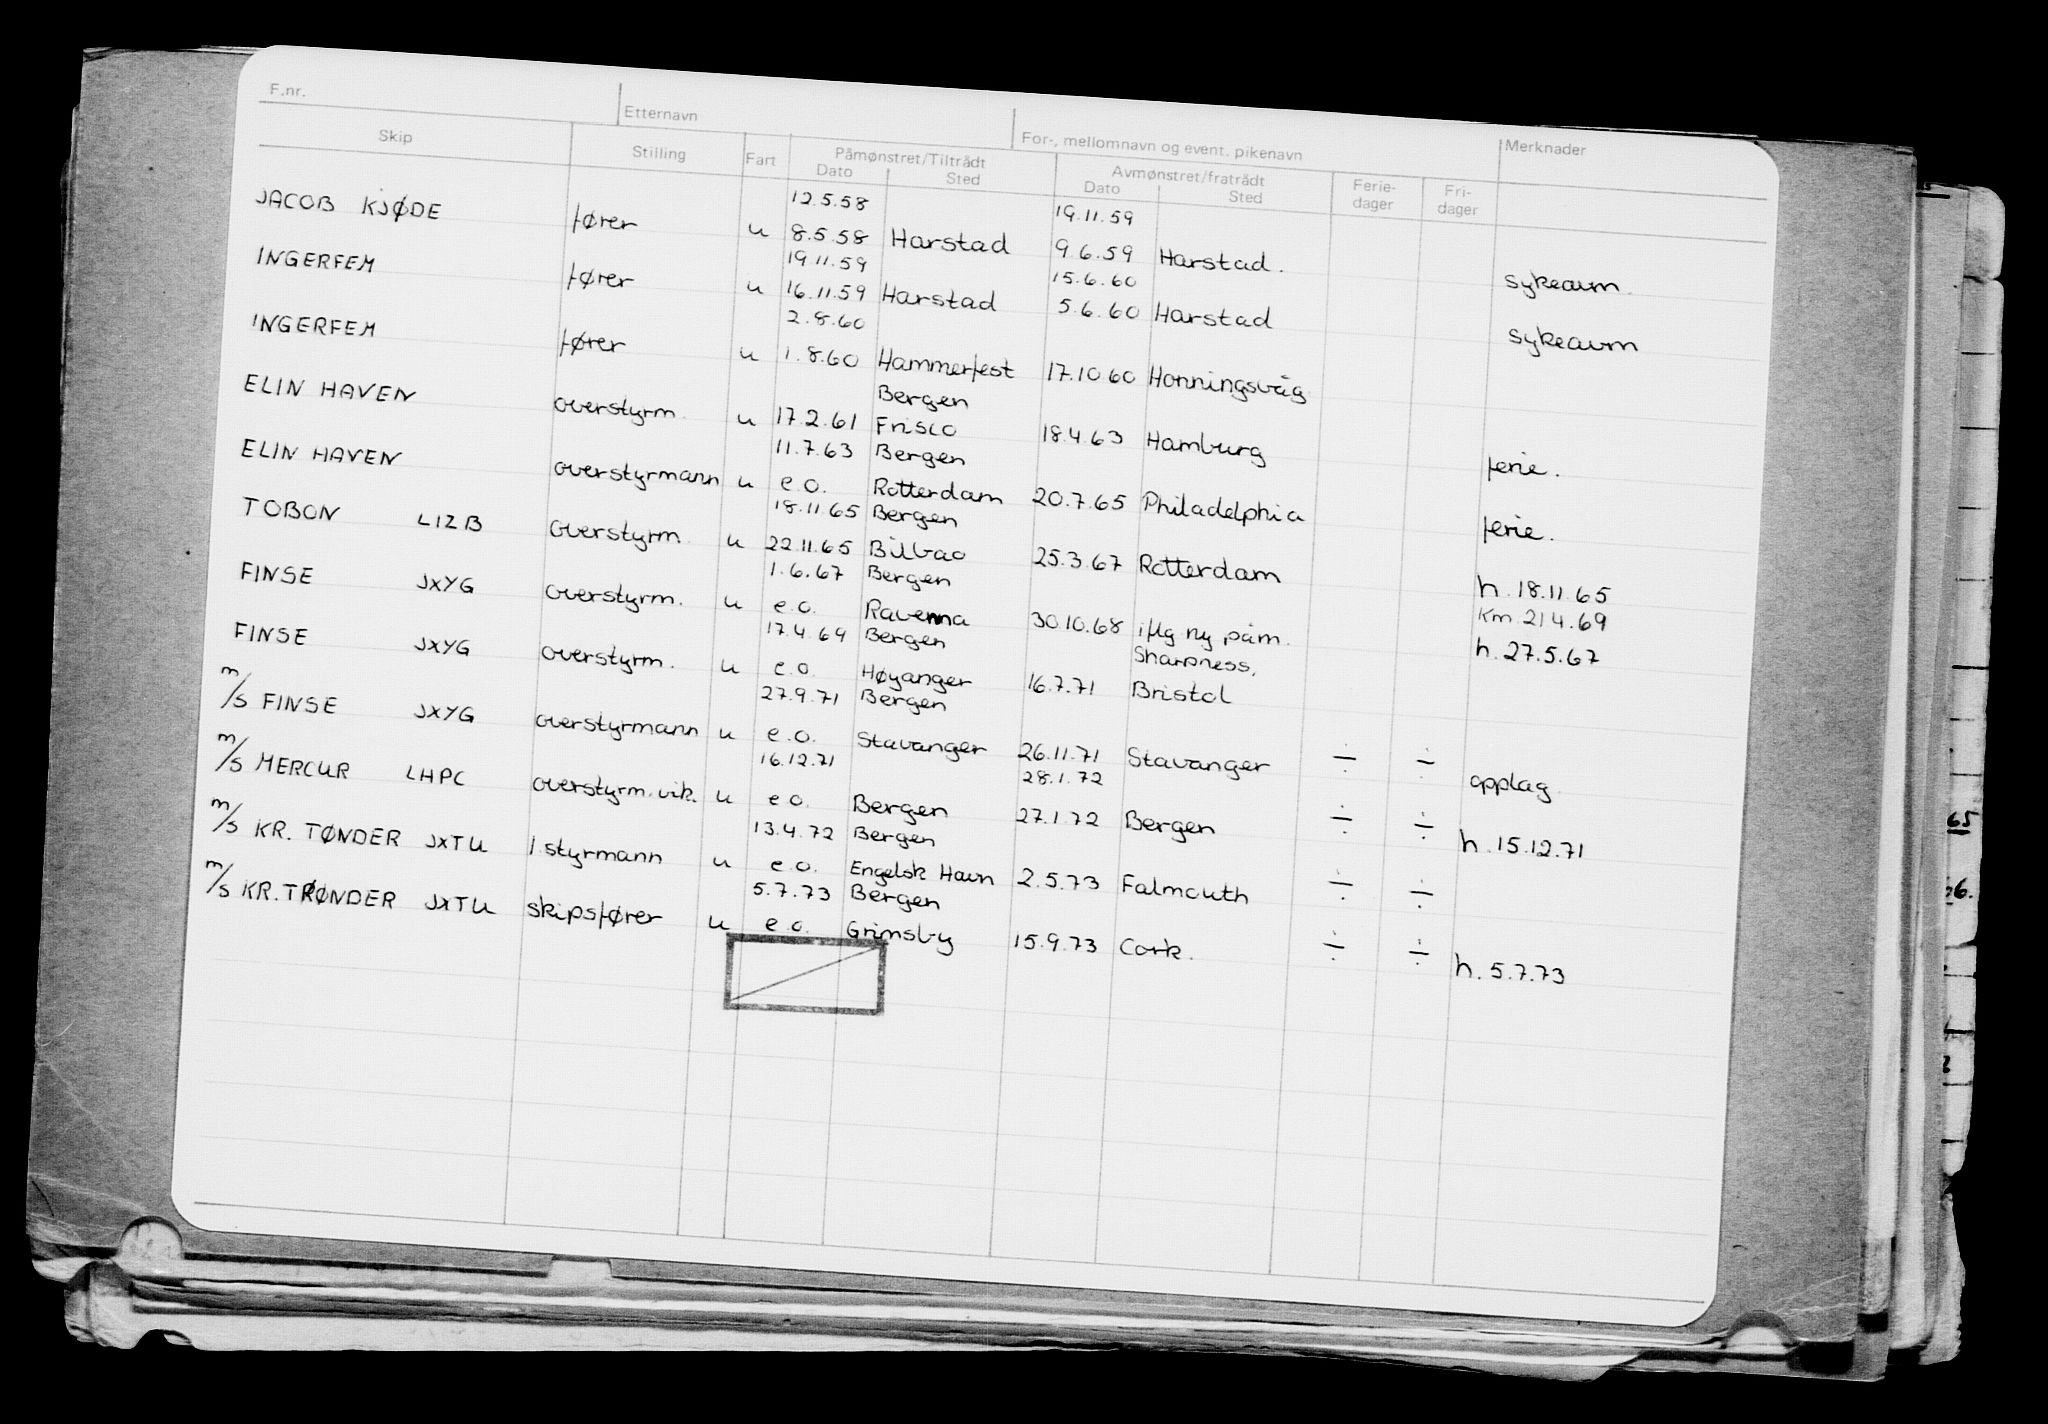 F.nr. Etternavn For-, mellomnavn og event. pikenavn Merknader
Skip Stilling Fart Påmønstret/Tiltrådt Avmønstret/fratrådt Ferie- Fri-
Dato Sted Dato Sted dager dager
12.5.58 19.11.59
JACOB KJØDE fører u 8.5.58 Harstad 9.6.59 Harstad. sykeavm.
19.11.59 15.6.60
INGERFEM fører u 16.11.59 Harstad 5.6.60 Harstad sykeavm
2.8.60
INGERFEM fører u 1.8.60 Hammerfest 17.10.60 Honningsvåg
Bergen
ELIN HAVEN overstyrm. u 17.2.61 Frisco 18.4.63 Hamburg ferie.
11.7.63 Bergen
ELIN HAVEN overstyrmann u e.o. Rotterdam 20.7.65 Philadelphia ferie.
18.11.65 Bergen
TOBON LIZB overstyrm. u 22.11.65 Bilbao 25.3.67 Rotterdam h. 18.11.65
1.6.67 Bergen Km. 21.4.69
FINSE JXYG overstyrm. u e.o. Ravenna 30.10.68 iflg ny påm. h. 27.5.67
17.4.69 Bergen Sharpness,
FINSE JXYG overstyrm. u e.o. Høyanger 16.7.71 Bristol
27.9.71 Bergen
m/s FINSE JXYG overstyrmann u e.o. Stavanger 26.11.71 Stavanger ÷ ÷ opplag
16.12.71 28.1.72
m/s MERCUR LHPC overstyrm. vik. u e.o. Bergen 27.1.72 Bergen ÷ ÷ h. 15.12.71
13.4.72 Bergen
m/s KR. TØNDER JXTU 1 styrmann u e.o. Engelsk Havn 2.5.73 Falmouth ÷ ÷
5.7.73 Bergen
m/s KR. TRØNDER JXTU skipsfører u e.o. Grimsby 15.9.73 Cork. ÷ ÷ h. 5.7.73
65